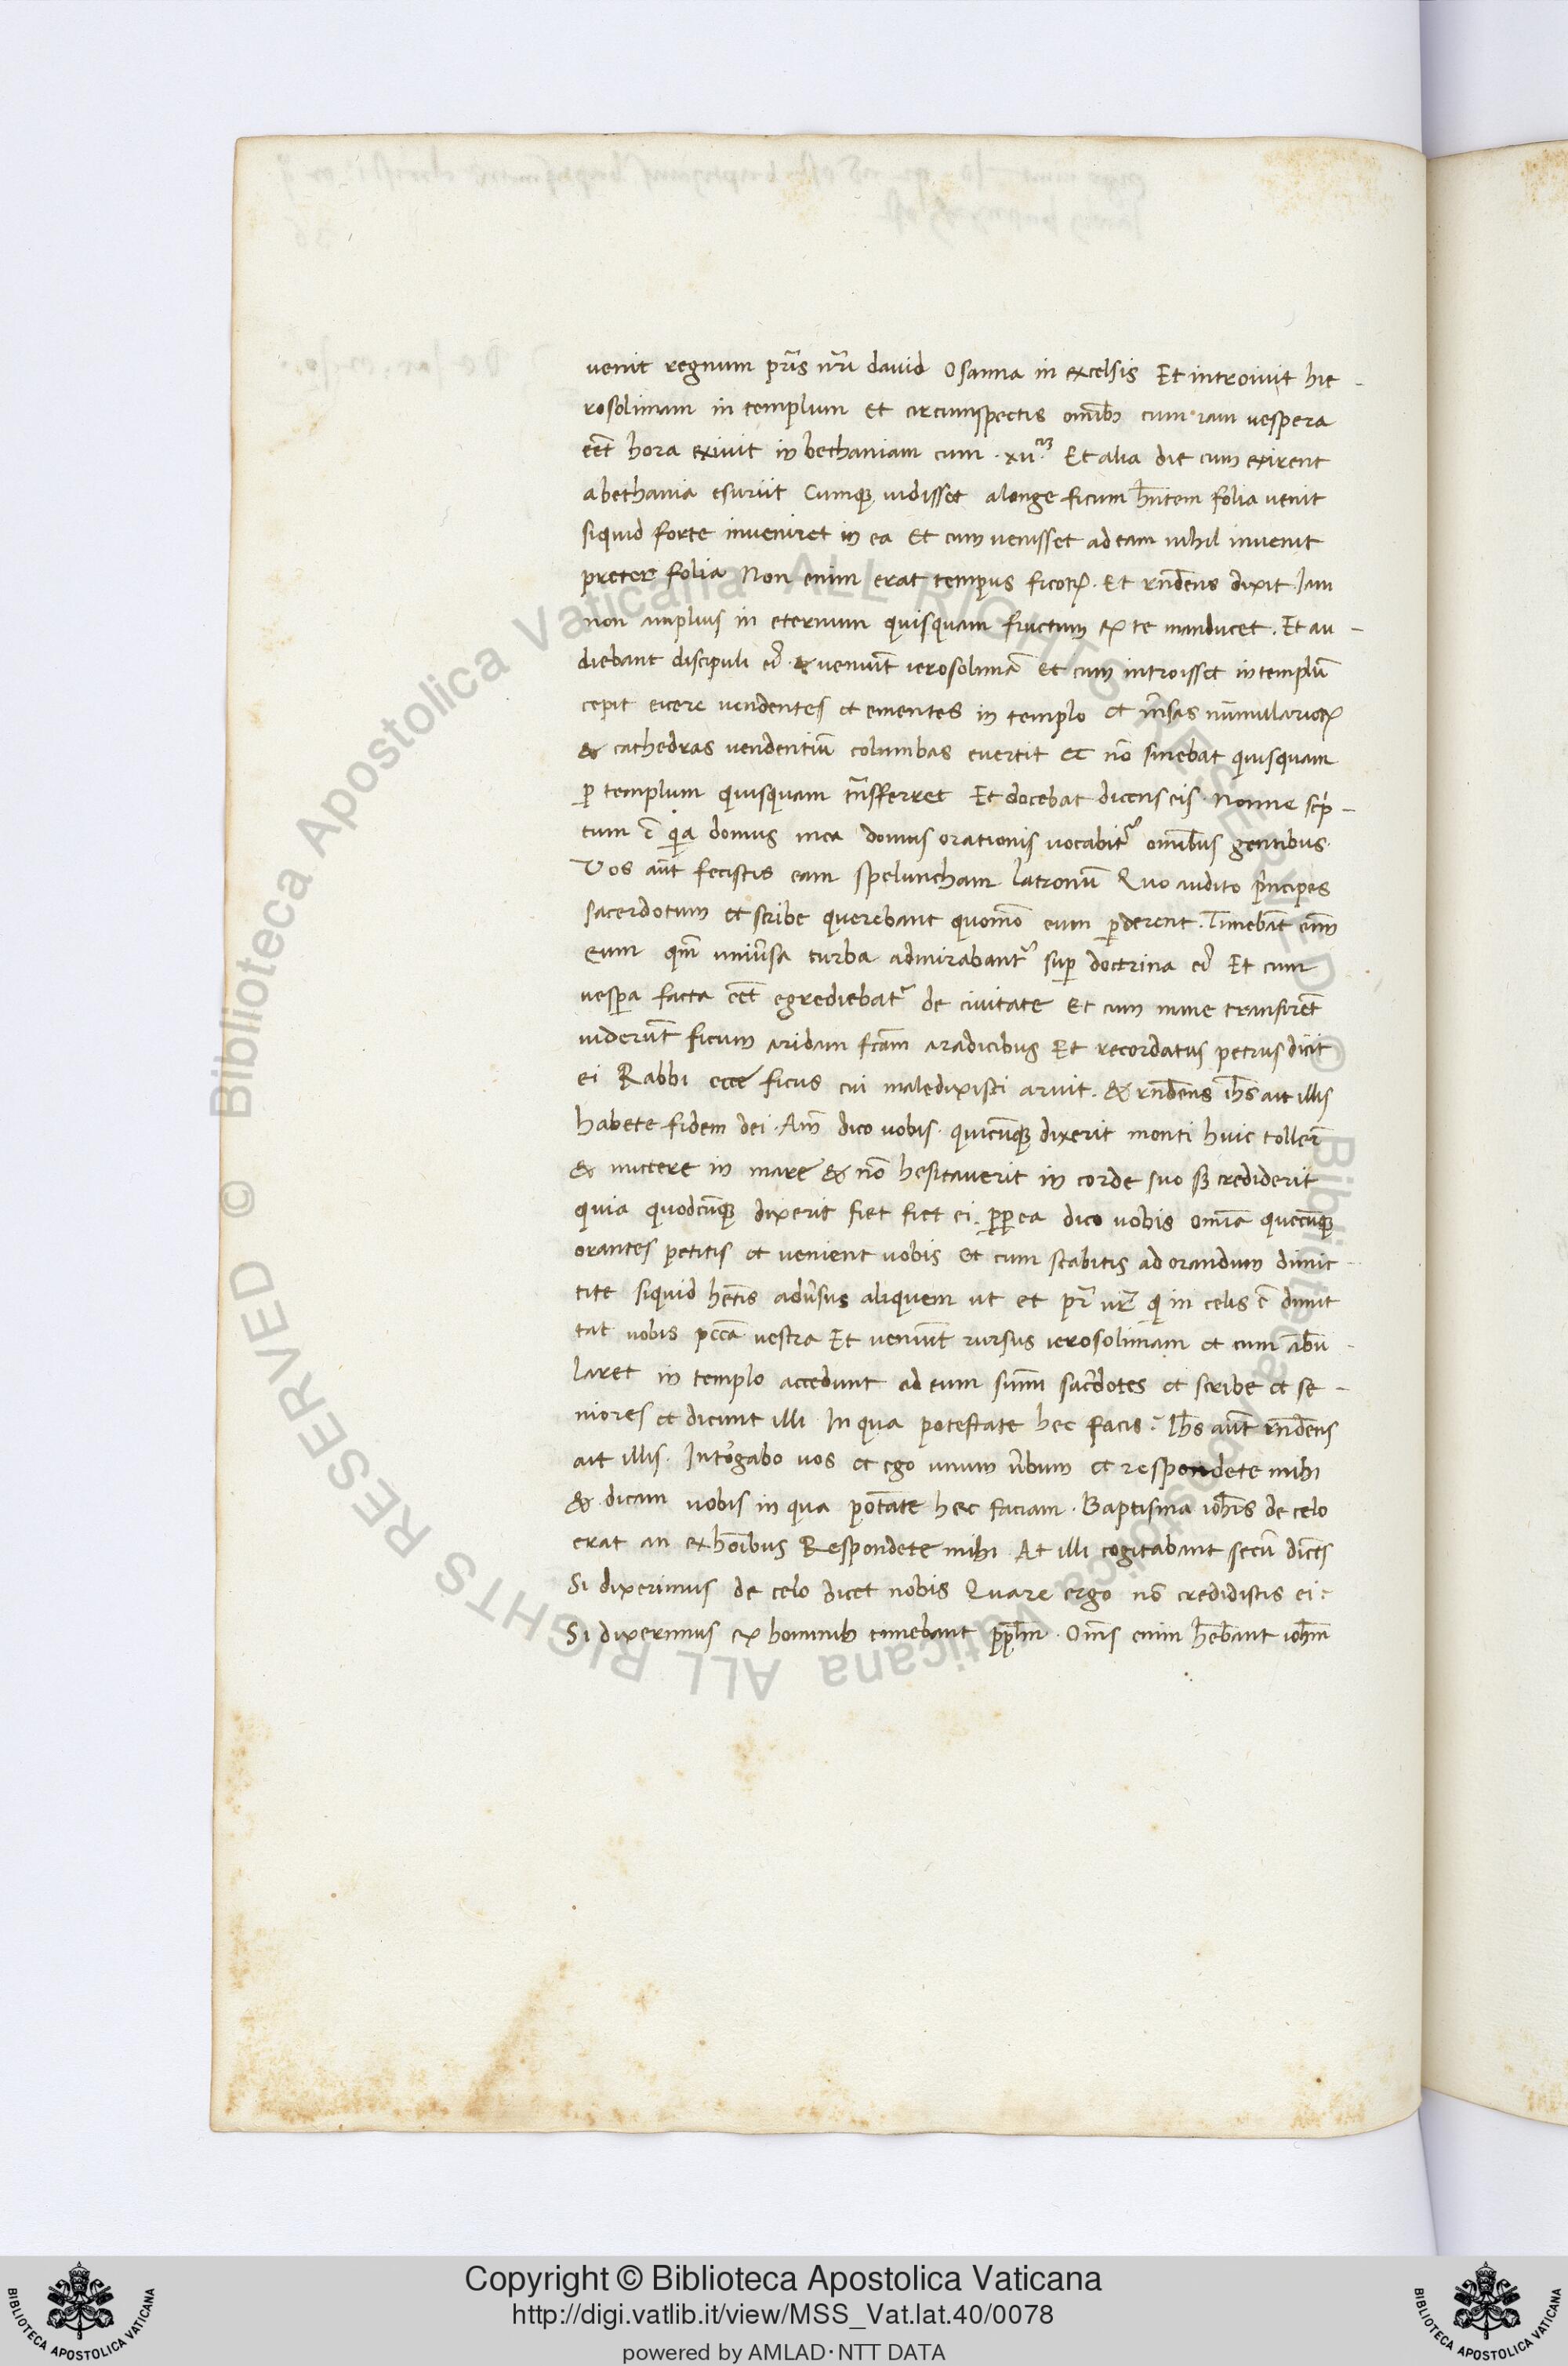 venit regnum pr̃is nr̃i david Osanna in excelsis Et introivit hie-
rosolimam in templum et circumspectis omĩbꝫ cum iam vespera
eẽt hora exivit in bethaniam cum .xii. Et alia die cum exirent
a bethania esuriit Cumqꝫ vidisset a longe ficum hñtem folia venit
siquid forte inveniret in ea Et cum venisset ad eam nihil invenit
preter folia Non enim erat tempus ficoꝝ. Et rñdens dixit Iam
non amplius in eternum quisquam fructum ex te manducet. Et au-
diebant discipuli ei⁹ & veniũt ierosolimã Et cum introisset in templũ
cepit eicere vendentes et ementes in templo et mẽsas nũmularioꝝ
& cathedras vendentiũ columbas evertit et nõ sinebat quisquam
ꝑ templum quisquam trãsferret Et docebat dicens eis. Nonne scrip-
tum ẽ quia domus mea domus orationis vocabit᷑ omĩbus gentibus.
Vos aũt fecistis eam speluncham latronũ Quo audito principes
sacerdotum et scribe querebant quomõ eum ꝑderent. Timebãt enim
eum qm̃ uniṽsa turba admirabant᷑ suꝑ doctrina ei⁹ Et cum
vesꝑa facta eẽt egrediebat᷑ de civitate Et cum mane transirẽt
viderũt ficum aridam fc̃am a radicibus Et recordatus petrus dicit
ei Rabbi ecce ficus cui maledixisti aruit. & rñdens ih̃s ait illis
habete fidem dei. Am̃ dico vobis. quicũqꝫ dixerit monti huic toller̃
& mittere in mare & nõ hesitaverit in corde suo sꝫ crediderit
quia quodcũqꝫ dixerit fiet fiet ei. ꝓꝑea dico vobis omĩa quecũqꝫ
orantes petitis et venient vobis Et cum stabitis ad orandum dimit-
tite siquid hẽtis adṽsus aliquem ut et pr̃ vr̃ qui in celis ẽ dimit
tat vobis pcc̃a vestra Et veniũt rursus ierosolimam et cum ãbu-
laret in templo accedunt ad eum sum̃i sac̃dotes et scribe et se-
niores et dicunt illi In qua potestate hec facis? Ih̃s aũt rñdens
ait illis. Int̃ogabo vos et ego unum ṽbum et respondete mihi
& dicam vobis in qua potãte hec faciam. Baptisma ioh̃is de celo
erat an ex hoĩbus Respondete mihi At illi cogitabant secũ dicẽts
Si dixerimus de celo dicet nobis Quare ergo nõ credidistis ei?
Si dixerimus ex hominibꝫ timebant ppl̃m. Om̃s enim hẽbant ioh̃m
© Biblioteca Apostolica Vaticana ALL RIGHTS RESERVED © Biblioteca Apostolica Vaticana ALL RIGHTS RESERVED
Copyright © Biblioteca Apostolica Vaticana
http://digi.vatlib.it/view/MSS_Vat.lat.40/0078
powered by AMLAD·NTT DATA
BIBLIOTECA APOSTOLICA VATICANA
BIBLIOTECA APOSTOLICA VATICANA